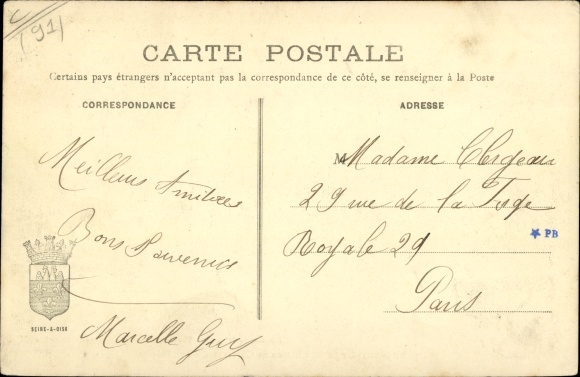 (91)
CARTE POSTALE
Certains pays étrangers n'acceptant pas la correspondance de ce côté, se renseigner à la Poste
CORRESPONDANCE
Meilleures Amitiées
Bons Souvenirs
Marcelle Guy
SEINE-&-OISE
ADRESSE
Madame
29 rue de la
Royale 29
Paris
PB